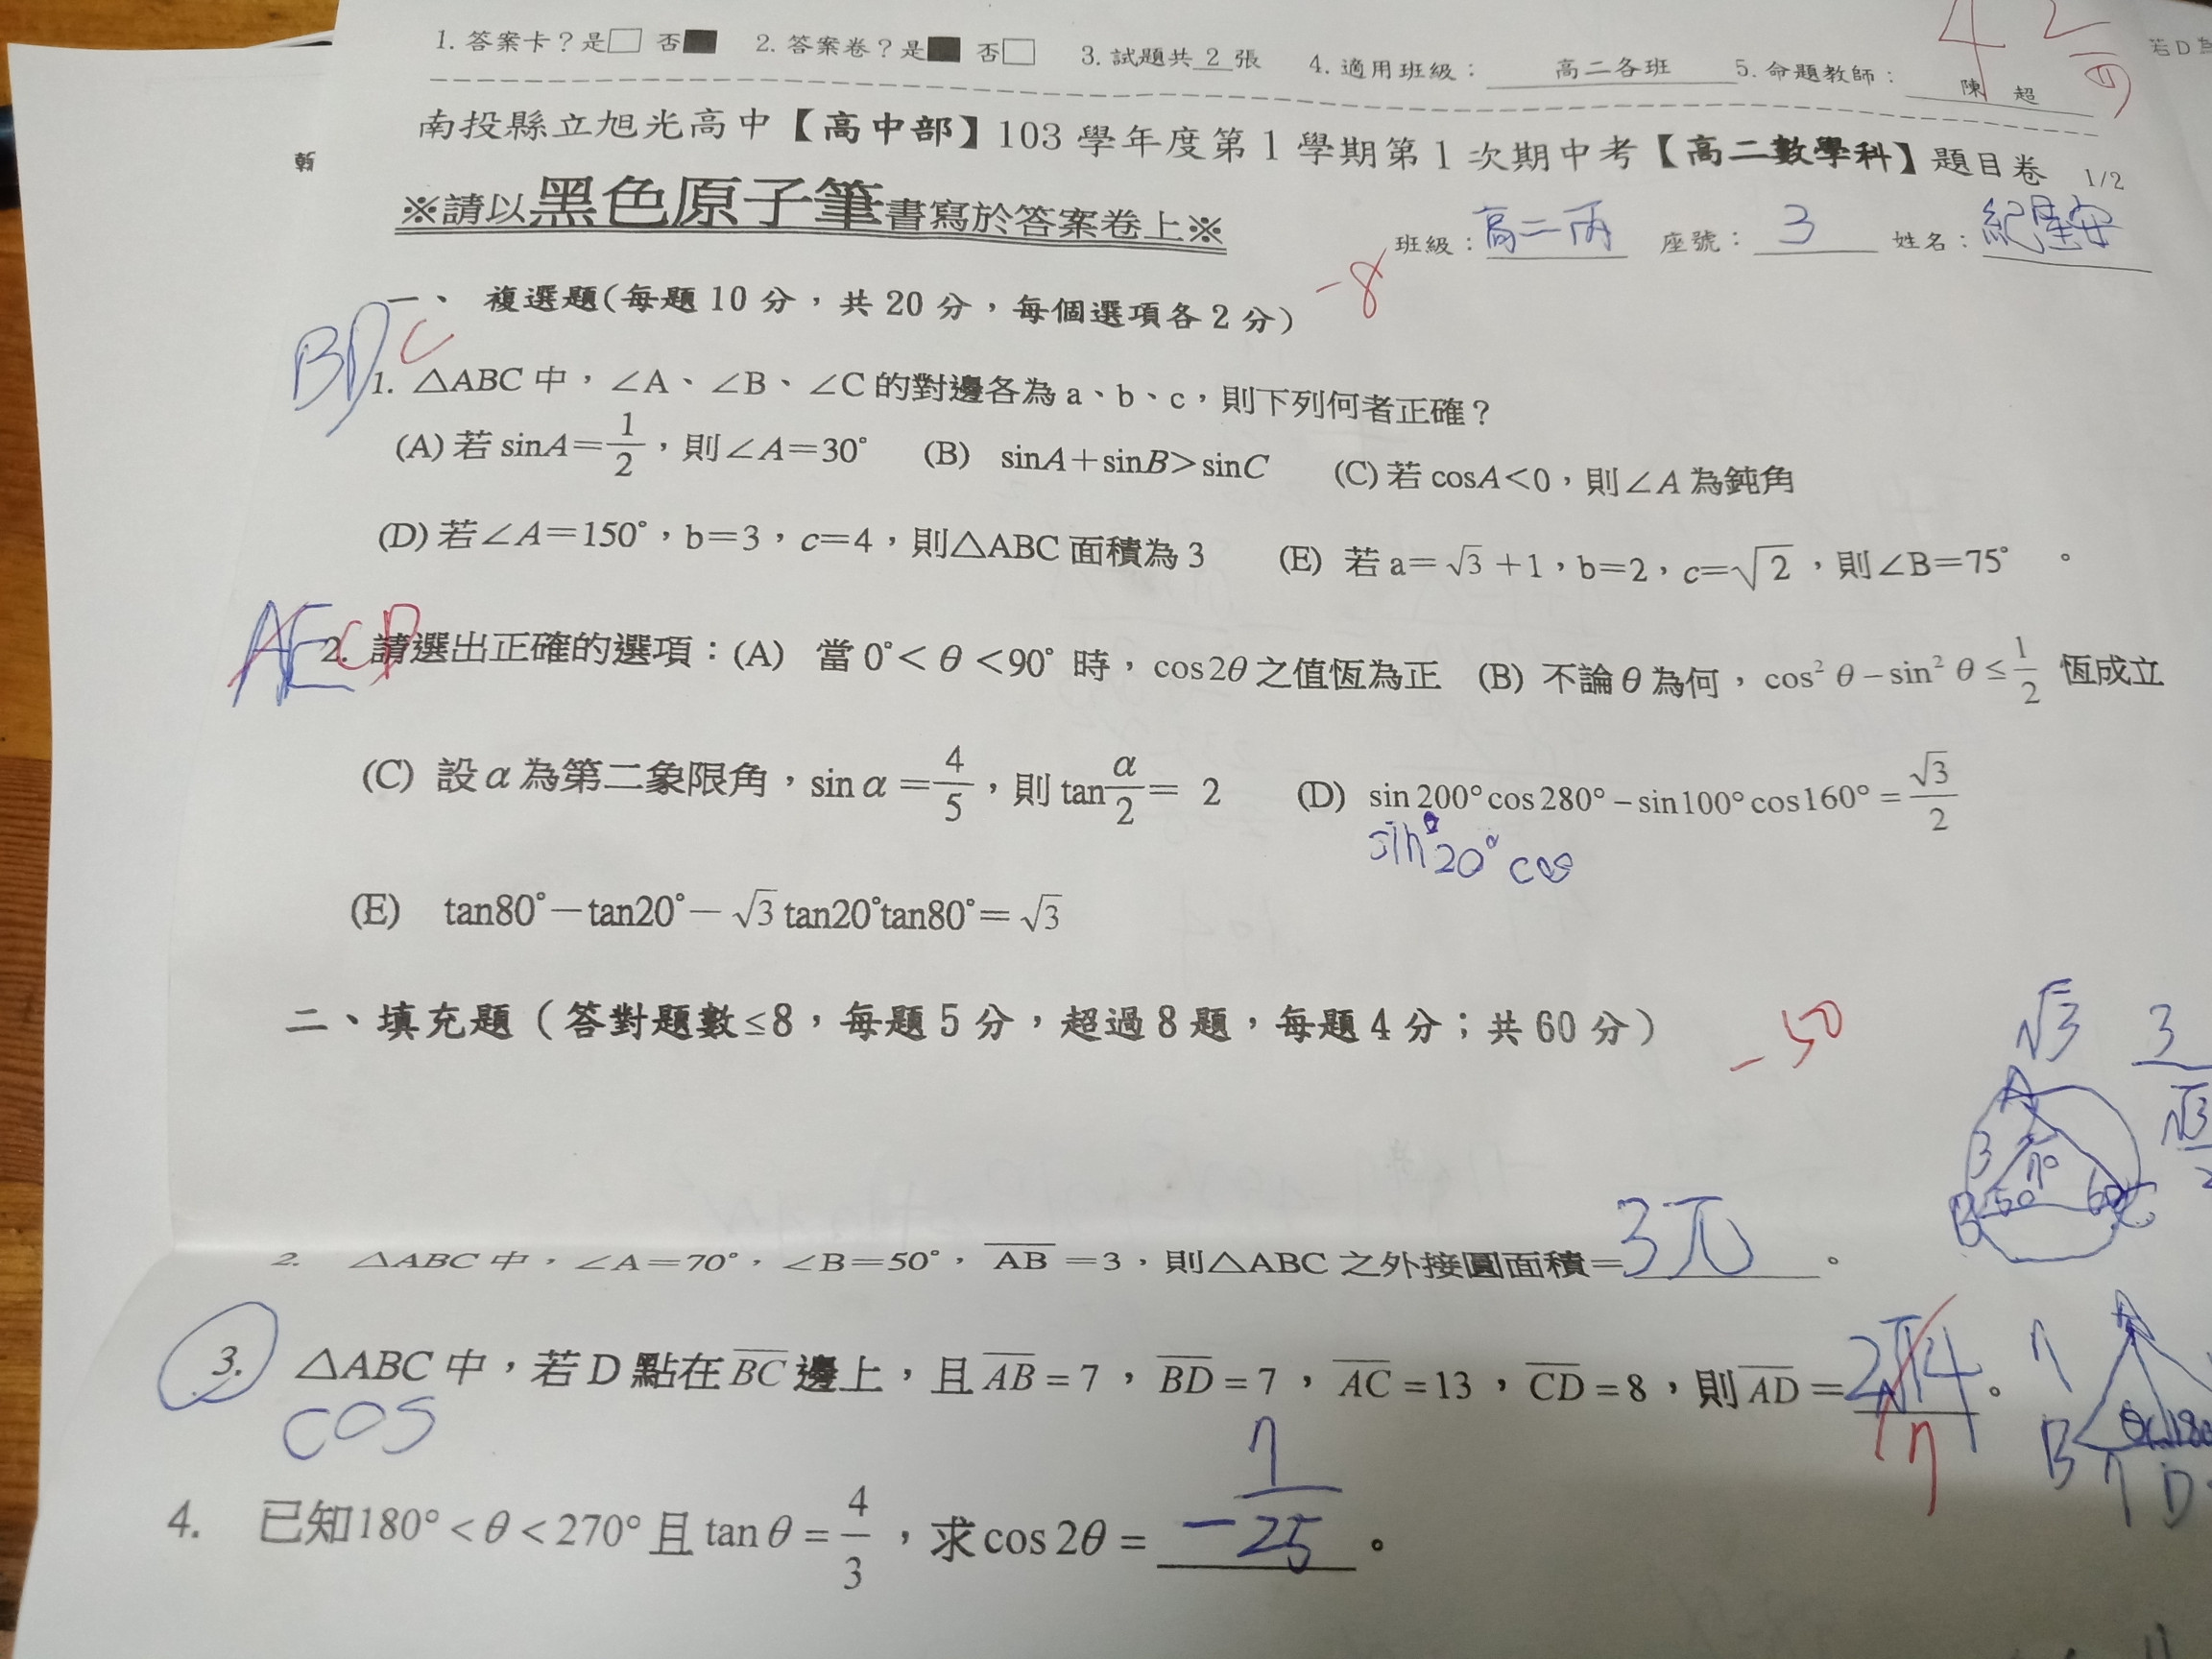 1. 答案卡？是□ 否■ 2. 答案卷？是■ 否□ 3. 試題共 2 張 4. 適用班級： 高二各班 5. 命題教師： 陳 超
42
若D為
南投縣立旭光高中【高中部】103 學年度第 1 學期第 1 次期中考【高二數學科】題目卷 1/2
※請以黑色原子筆書寫於答案卷上※
班級：高二丙 座號：3 姓名：
一、 複選題(每題 10 分，共 20 分，每個選項各 2 分) -8
BD C
1. △ABC 中，∠A、∠B、∠C 的對邊各為 a、b、c，則下列何者正確？
(A) 若 sinA=1/2，則∠A=30° (B) sinA+sinB>sinC (C) 若 cosA<0，則∠A 為鈍角
(D) 若∠A=150°，b=3，c=4，則△ABC 面積為 3 (E) 若 a=√3+1，b=2，c=√2，則∠B=75° 。
AE CD
2. 請選出正確的選項：(A) 當 0°<θ<90° 時，cos2θ 之值恆為正 (B) 不論θ為何，cos² θ−sin² θ≤1/2 恆成立
(C) 設α為第二象限角，sin α=4/5，則 tan α/2= 2 (D) sin200°cos280°−sin100°cos160°=√3/2
sin 20° cos
(E) tan80°−tan20°−√3 tan20°tan80°=√3
二、填充題（答對題數≤8，每題 5 分，超過 8 題，每題 4 分；共 60 分） -50
√3 3
√3
2
A
3 70
B 50 60 C
2. △ABC 中，∠A=70°，∠B=50°，AB=3，則△ABC 之外接圓面積=3π。
3. △ABC 中，若 D 點在 BC 邊上，且 AB=7，BD=7，AC=13，CD=8，則 AD=2√14。
7
cos
7
B 7 D
4. 已知180°<θ<270°且 tan θ=4/3，求 cos 2θ=−7/25。